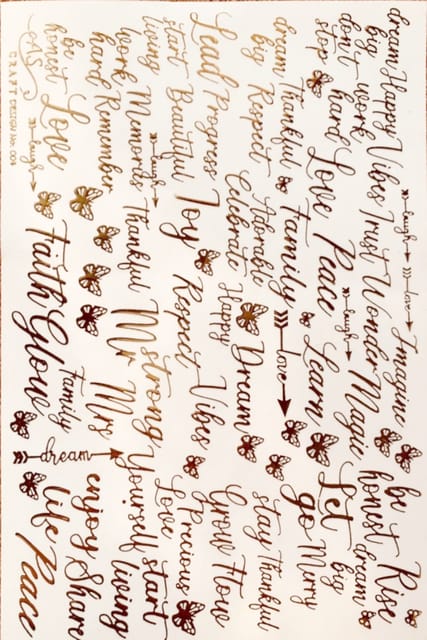 dream big
Happy Vibes
laugh
love
Imagine
Rise
don't stop
work hard
Trust Wonder Magic
be honest
dream big
Love Peace
laugh
Learn
Let go
Merry
dream big
Thankful
Family
love
stay Thankful
Respect
Adorable
Celebrate
Happy
Dream
Grow Flow
Lead Progress
Joy
Respect
Vibes
Precious
Love
start living
Beautiful
laugh
strong
Yourself
start living
work hard
Memories
Remember
Thankful
Mr Mrs
enjoy life
Share
Peace
be honest
Love
laugh
Faith
Glow
Family
dream
CRAFT DESIGN No.